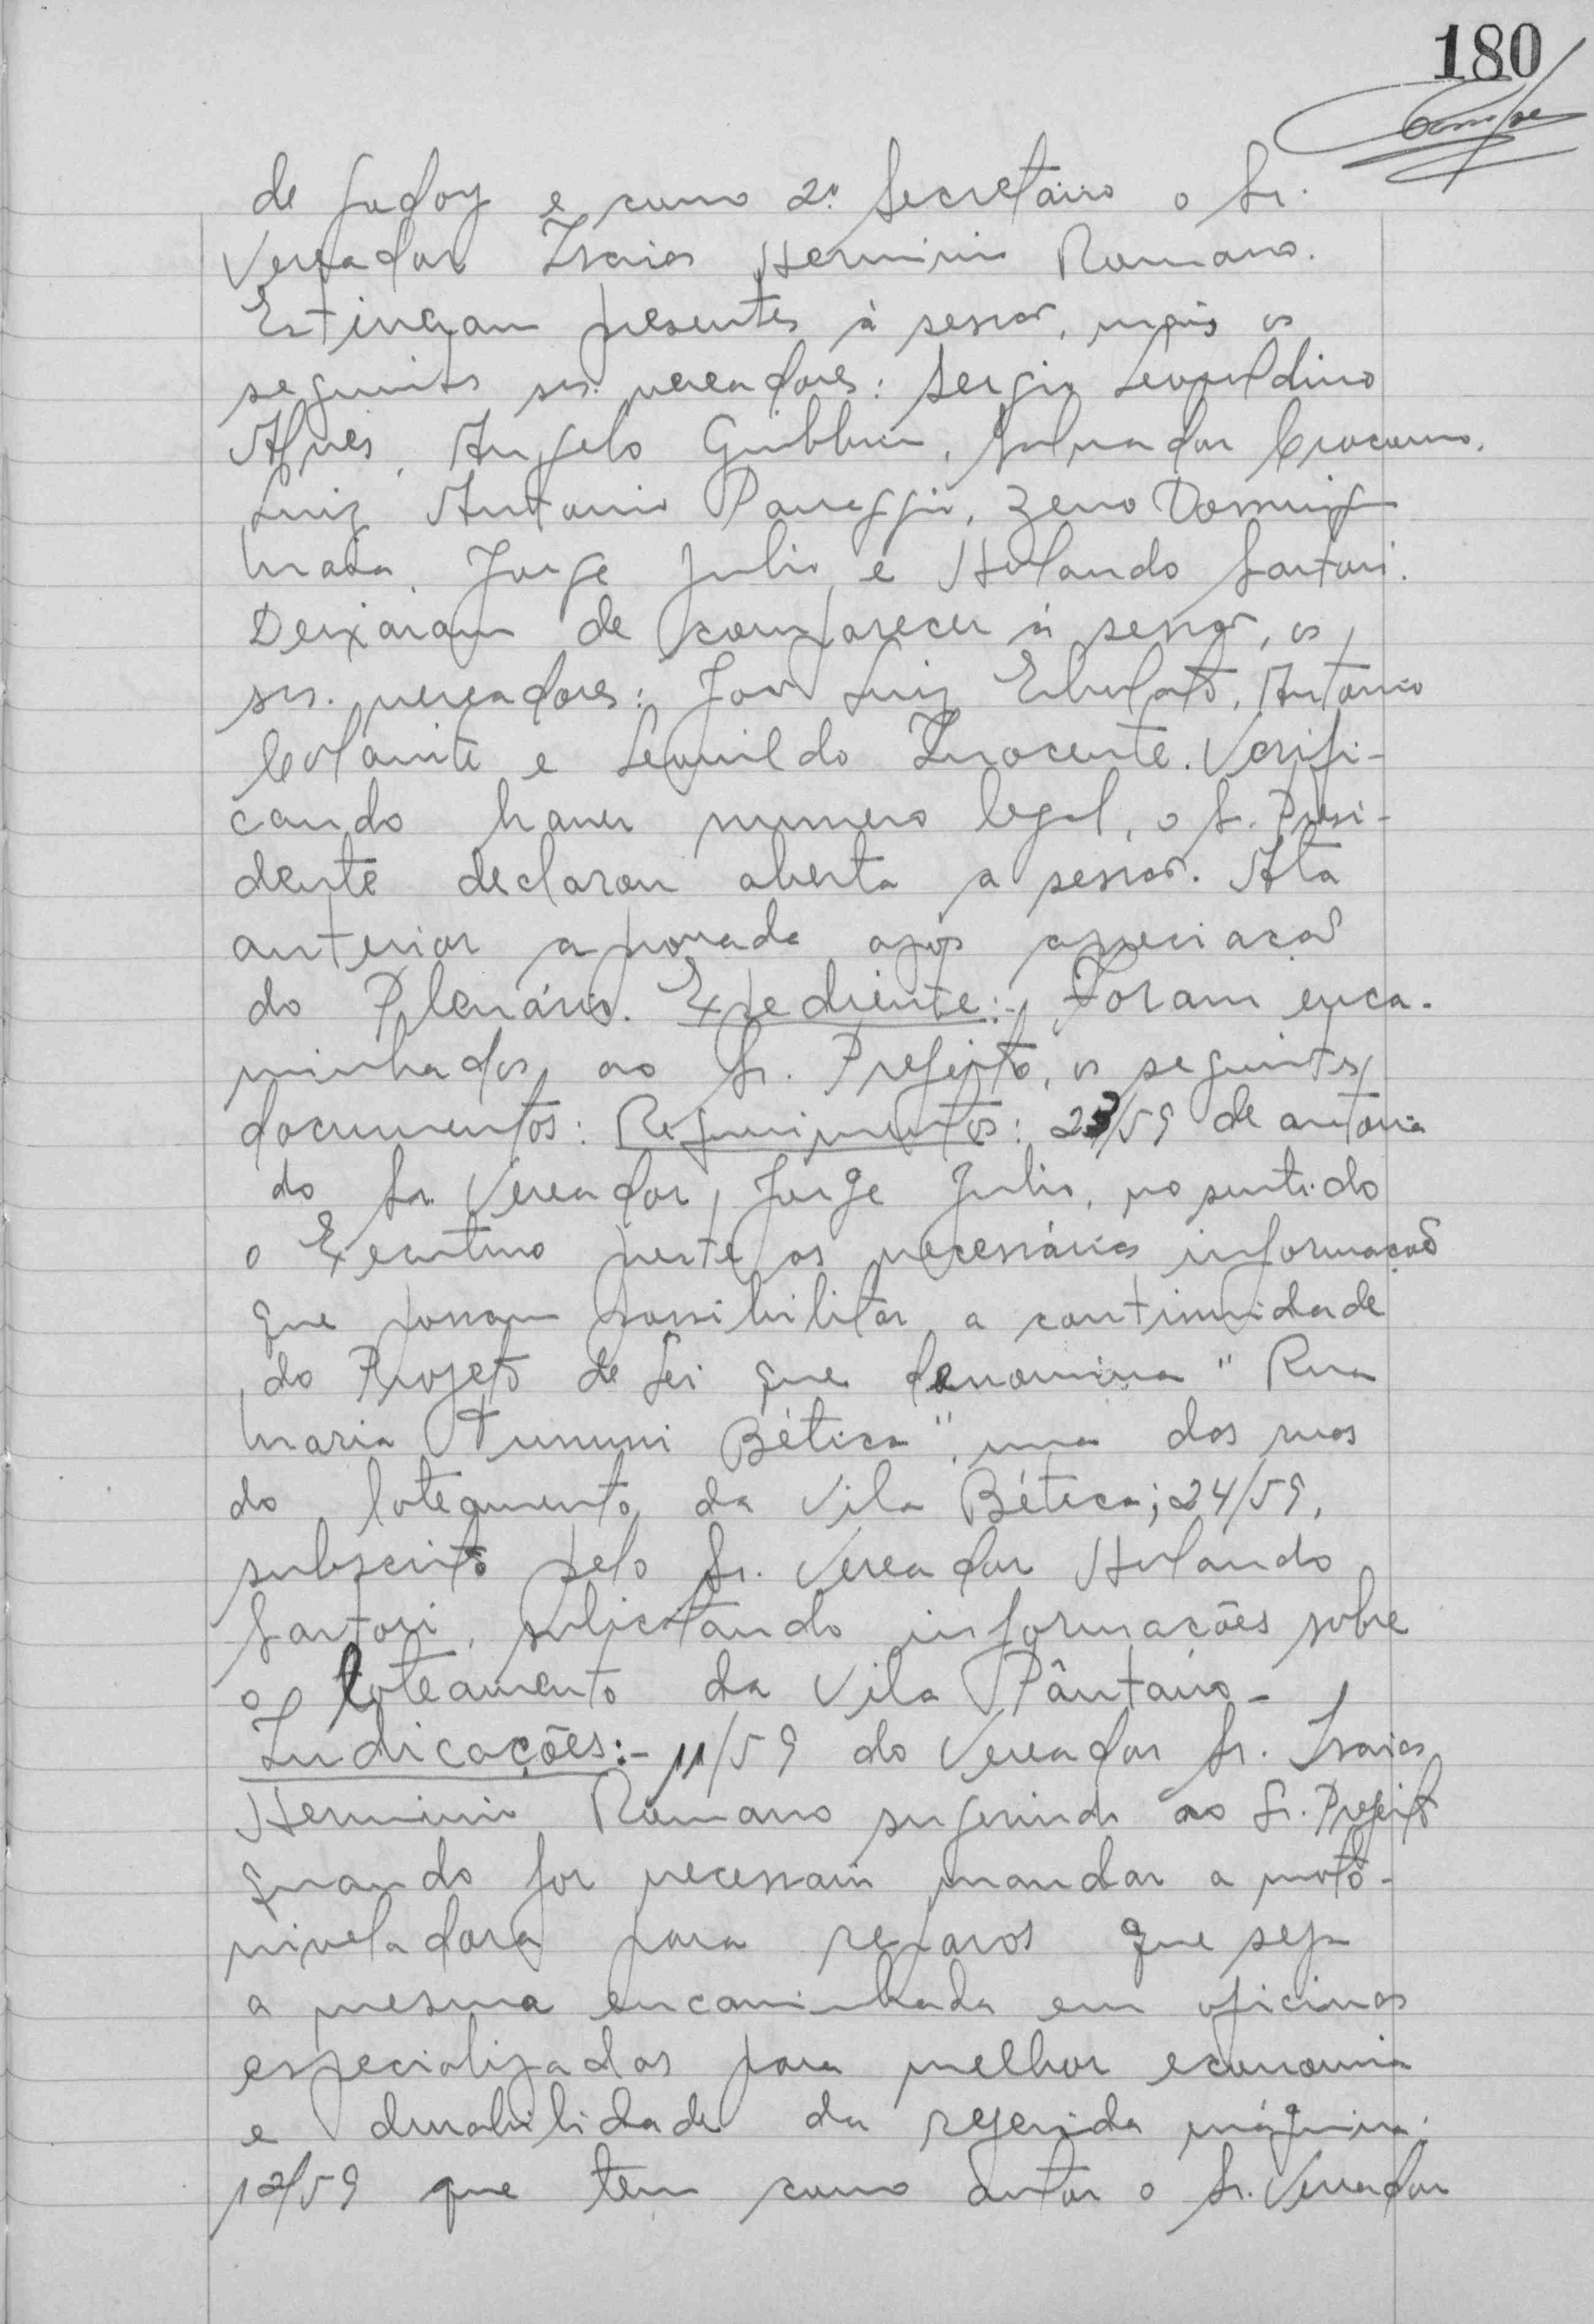 180
de Godoy e como 2º Secretário o Sr.
Vereador Isaias Herminio Romano.
Estiveram presentes à sessão, mais os
seguintes srs. vereadores: Sergio Leopoldino
Alves, Angelo, Salvador
Luiz Antonio, Zeno Domingos
Maia, Jorge Julio e Holando Sartori.
Deixaram de comparecer à sessão, os
srs. vereadores: João Luiz, Antonio
e Leonildo Inocente. Verifi-
cando haver numero legal, o Sr. Presi-
dente declarou aberta a sessão. Ata
anterior aprovada após apreciação
do Plenário. Expediente:- Foram enca-
minhados ao Sr. Prefeito, os seguintes
documentos: Requerimentos: 23/59 de autoria
do Sr. Vereador, Jorge Julio, no sentido
o Executivo preste as necessárias informações
que possam possibilitar a continuidade
do Projeto de Lei que denomina "Rua
Maria Bética", uma das ruas
do loteamento da Vila Bética; 24/59,
subscrito pelo Sr. Vereador Holando
Sartori, solicitando informações sobre
o loteamento da Vila Pântano-
Indicações:- 11/59 do Vereador Sr. Isaias
Herminio Romano sugerindo ao Sr. Prefeito
quando for necessario mandar a moto-
niveladora para reparos que seja
a mesma encaminhada em oficinas
especializadas para melhor economia
e durabilidade da referida máquina;
12/59 que tem como autor o Sr. Vereador